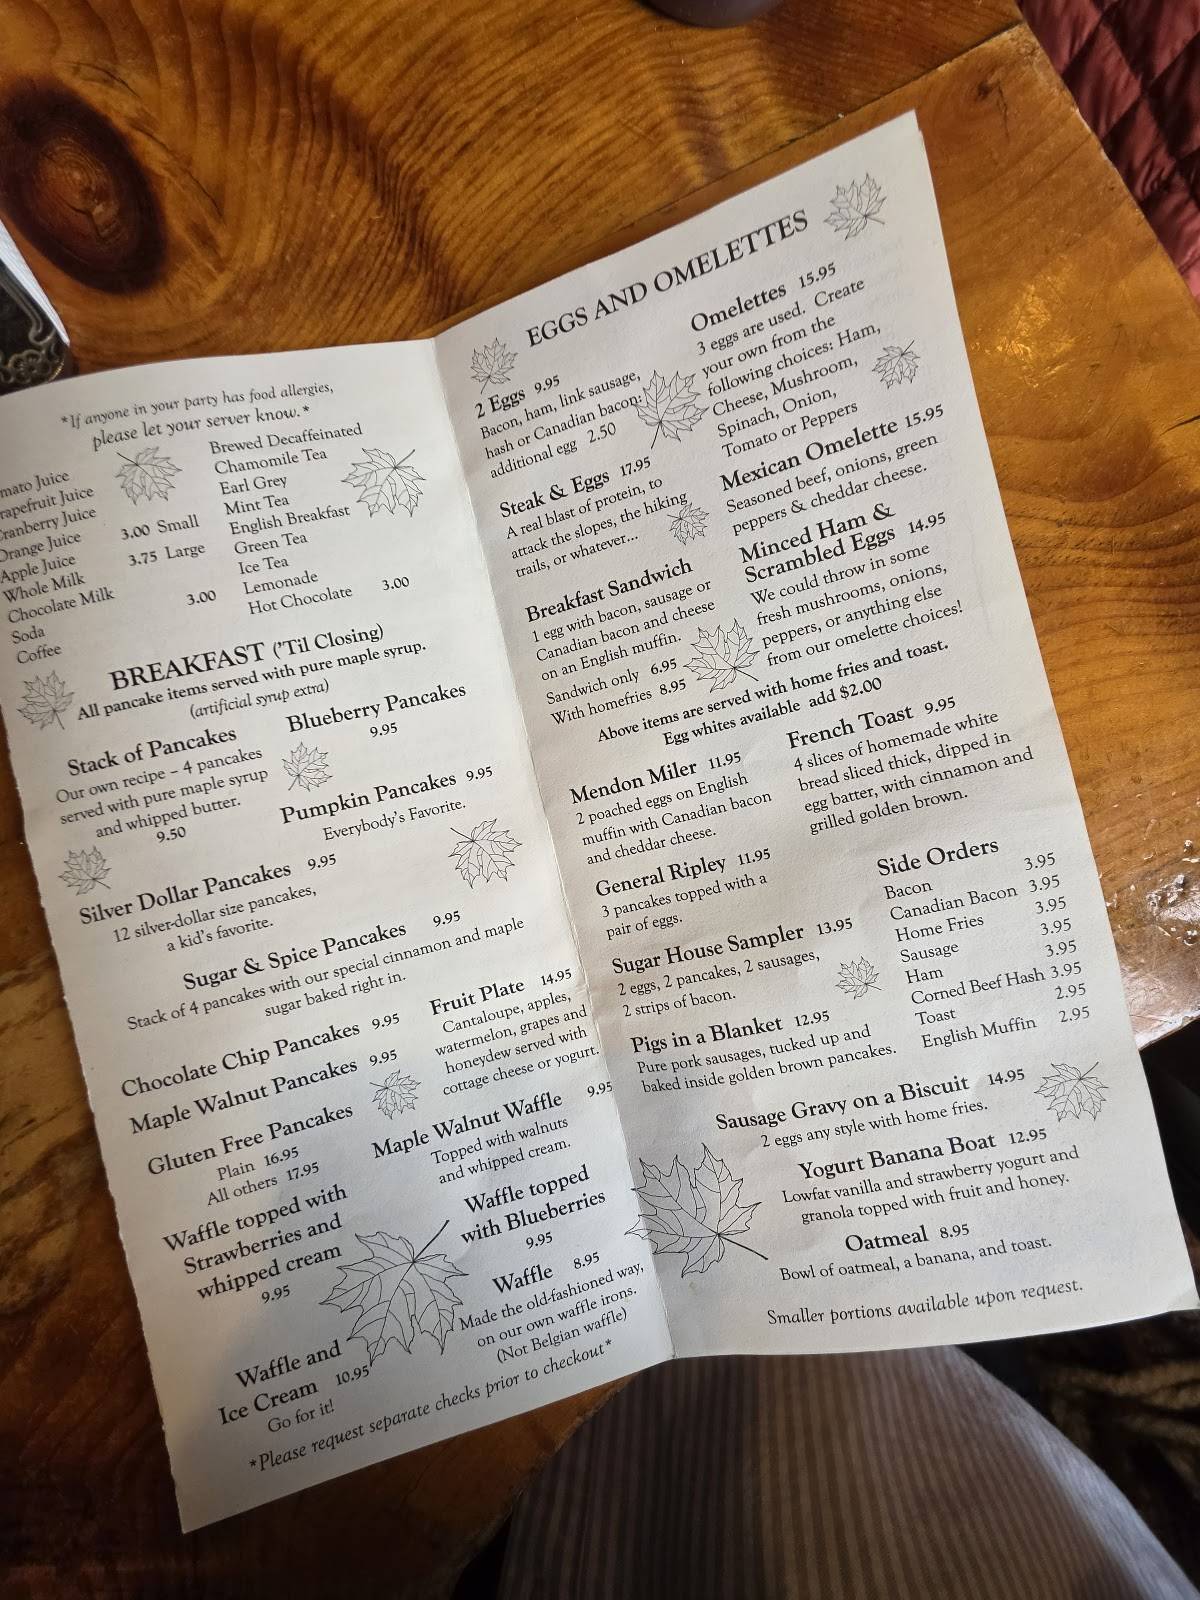 *If anyone in your party has food allergies,
please let your server know.*
mato Juice
rapefruit Juice
ranberry Juice
Orange Juice
Apple Juice
Whole Milk
Chocolate Milk
Soda
Coffee
3.00 Small
3.75 Large
3.00
Brewed Decaffeinated
Chamomile Tea
Earl Grey
Mint Tea
English Breakfast
Green Tea
Ice Tea
Lemonade
Hot Chocolate 3.00
BREAKFAST ('Til Closing)
All pancake items served with pure maple syrup.
(artificial syrup extra)
Stack of Pancakes
Our own recipe – 4 pancakes
served with pure maple syrup
and whipped butter.
9.50
Blueberry Pancakes
9.95
Pumpkin Pancakes 9.95
Everybody's Favorite.
Silver Dollar Pancakes 9.95
12 silver-dollar size pancakes,
a kid's favorite.
Sugar & Spice Pancakes 9.95
Stack of 4 pancakes with our special cinnamon and maple
sugar baked right in.
Chocolate Chip Pancakes 9.95
Maple Walnut Pancakes 9.95
Gluten Free Pancakes
Plain 16.95
All others 17.95
Waffle topped with
Strawberries and
whipped cream
9.95
Waffle and
Ice Cream 10.95
Go for it!
Fruit Plate 14.95
Cantaloupe, apples,
watermelon, grapes and
honeydew served with
cottage cheese or yogurt.
Maple Walnut Waffle 9.95
Topped with walnuts
and whipped cream.
Waffle topped
with Blueberries
9.95
Waffle 8.95
Made the old-fashioned way,
on our own waffle irons.
(Not Belgian waffle)
*Please request separate checks prior to checkout*
EGGS AND OMELETTES
2 Eggs 9.95
Bacon, ham, link sausage,
hash or Canadian bacon:
additional egg 2.50
Steak & Eggs 17.95
A real blast of protein, to
attack the slopes, the hiking
trails, or whatever...
Breakfast Sandwich
1 egg with bacon, sausage or
Canadian bacon and cheese
on an English muffin.
Sandwich only 6.95
With homefries 8.95
Omelettes 15.95
3 eggs are used. Create
your own from the
following choices: Ham,
Cheese, Mushroom,
Spinach, Onion,
Tomato or Peppers
Mexican Omelette 15.95
Seasoned beef, onions, green
peppers & cheddar cheese.
Minced Ham &
Scrambled Eggs 14.95
We could throw in some
fresh mushrooms, onions,
peppers, or anything else
from our omelette choices!
Above items are served with home fries and toast.
Egg whites available add $2.00
Mendon Miler 11.95
2 poached eggs on English
muffin with Canadian bacon
and cheddar cheese.
General Ripley 11.95
3 pancakes topped with a
pair of eggs.
Sugar House Sampler 13.95
2 eggs, 2 pancakes, 2 sausages,
2 strips of bacon.
Pigs in a Blanket 12.95
Pure pork sausages, tucked up and
baked inside golden brown pancakes.
French Toast 9.95
4 slices of homemade white
bread sliced thick, dipped in
egg batter, with cinnamon and
grilled golden brown.
Side Orders
Bacon 3.95
Canadian Bacon 3.95
Home Fries 3.95
Sausage 3.95
Ham 3.95
Corned Beef Hash 3.95
Toast 2.95
English Muffin 2.95
Sausage Gravy on a Biscuit 14.95
2 eggs any style with home fries.
Yogurt Banana Boat 12.95
Lowfat vanilla and strawberry yogurt and
granola topped with fruit and honey.
Oatmeal 8.95
Bowl of oatmeal, a banana, and toast.
Smaller portions available upon request.